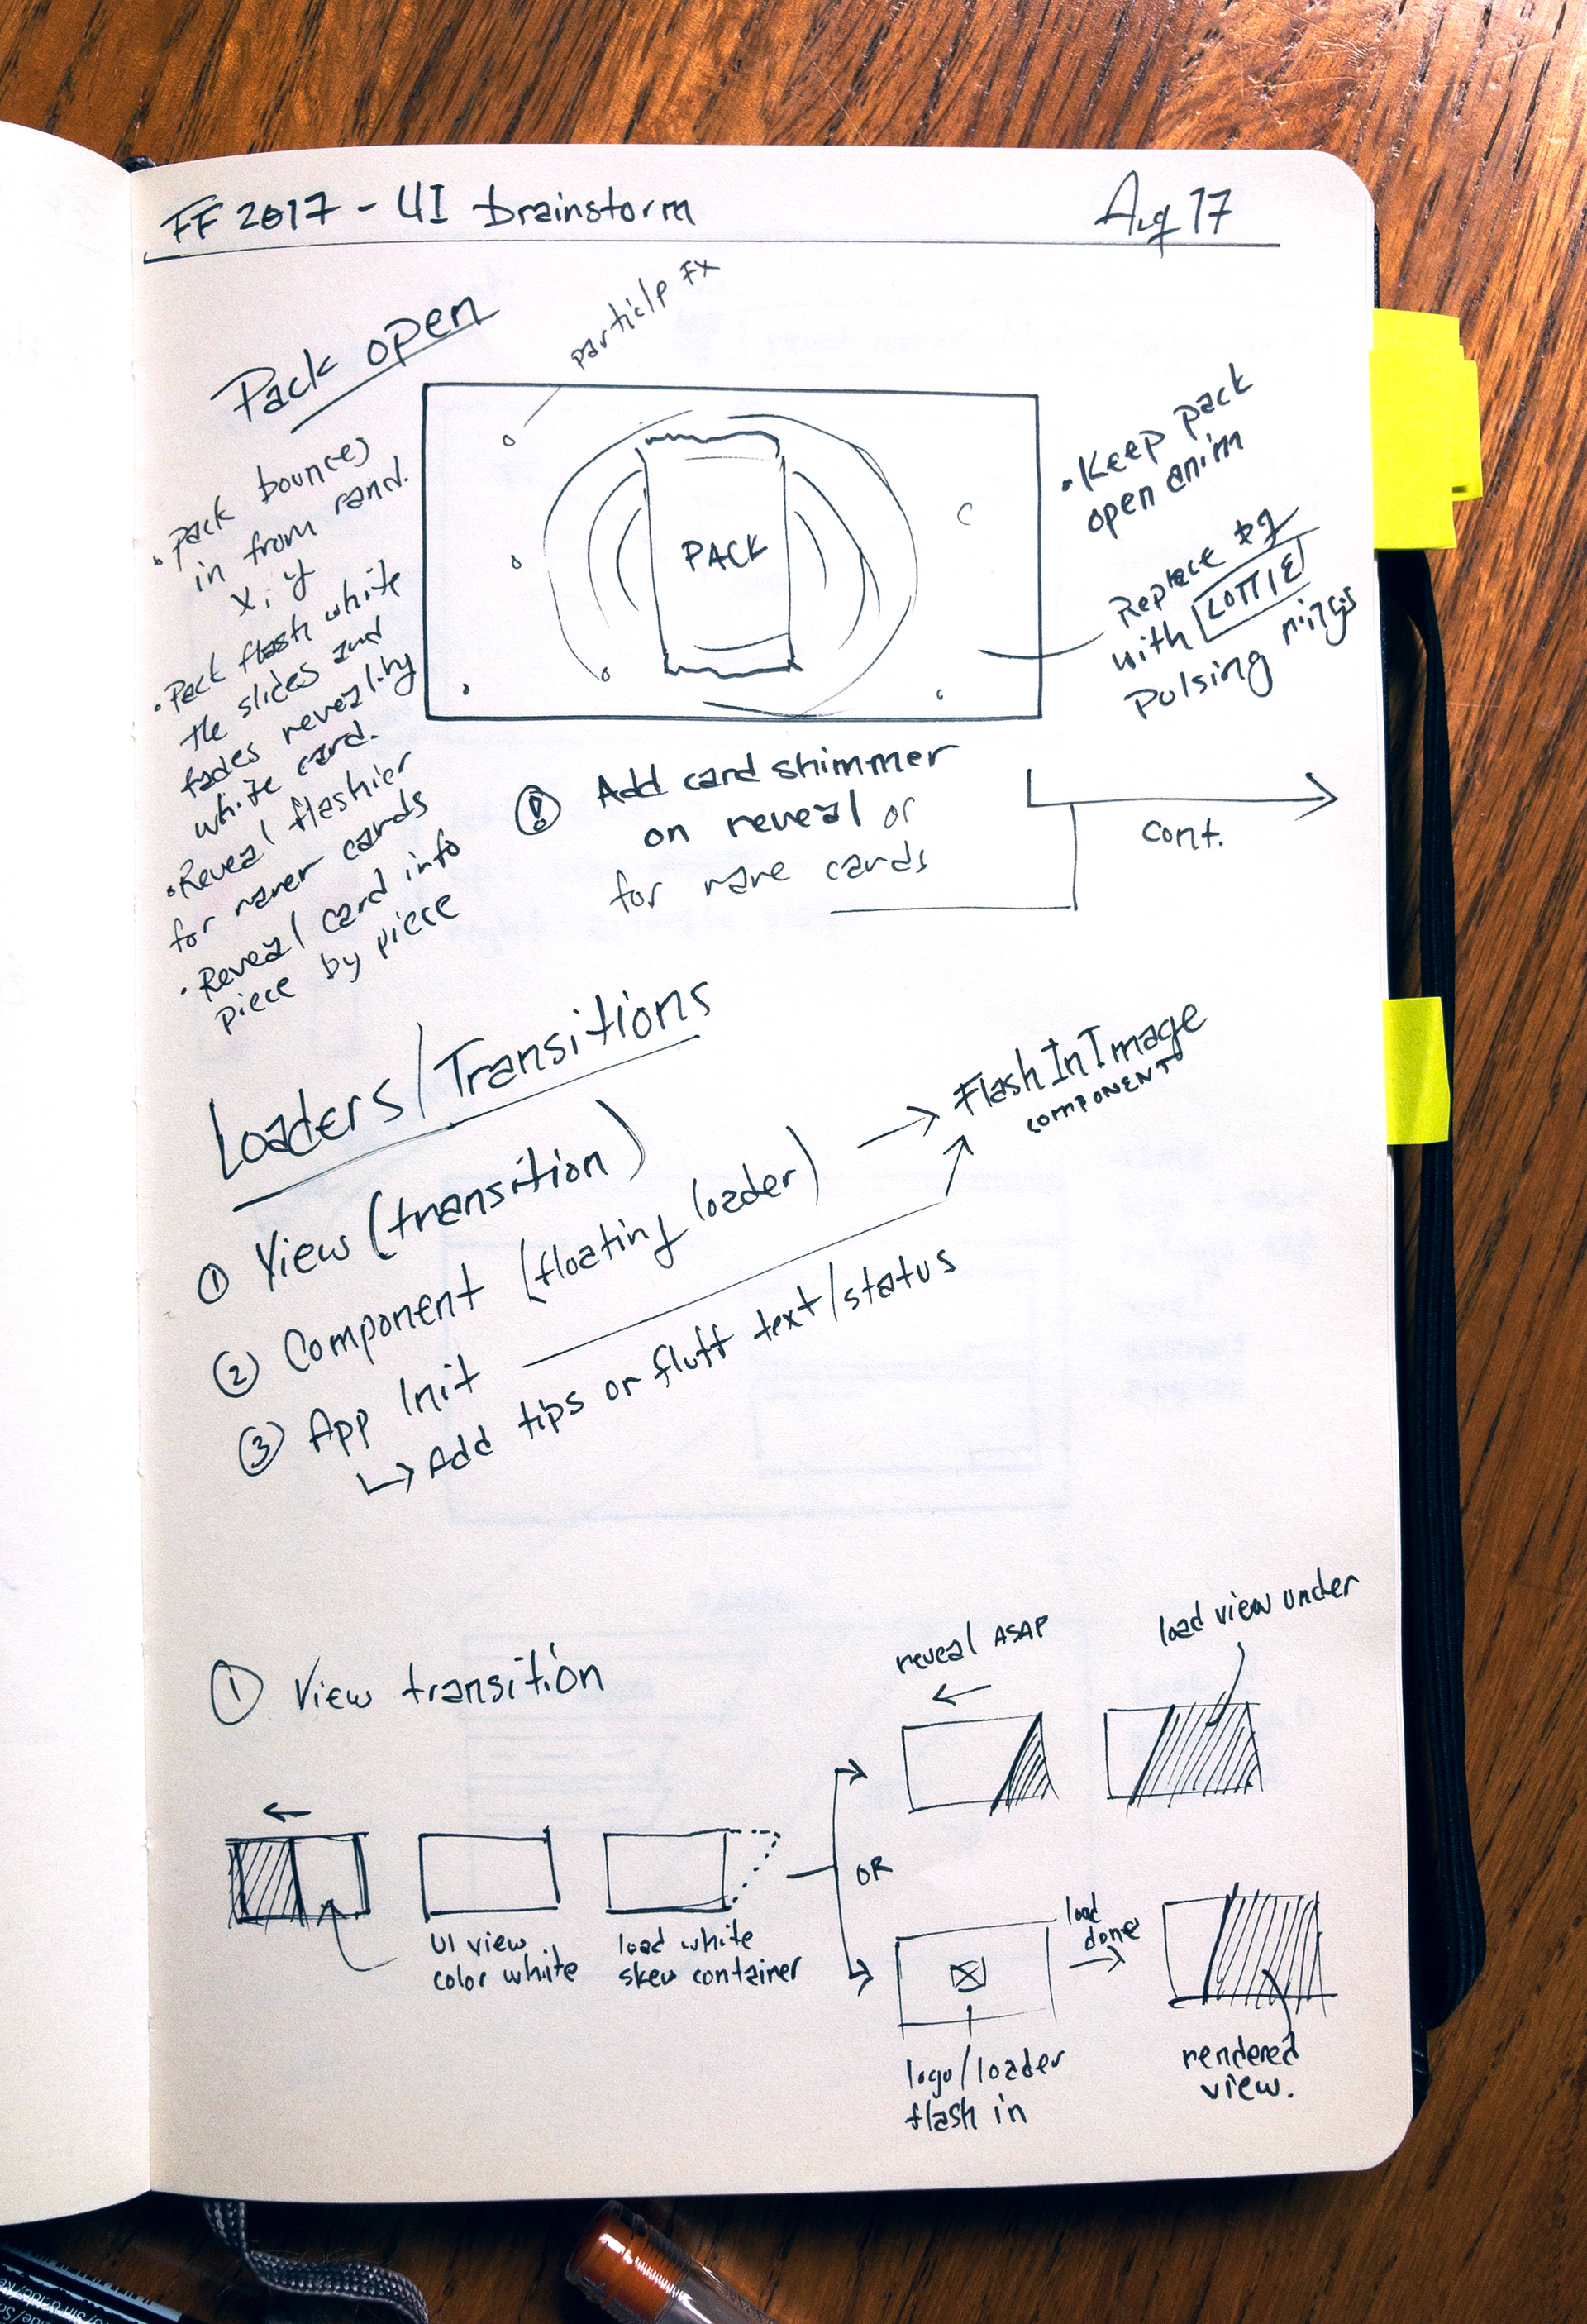 FF 2017 - UI brainstorm
Aug 17
Pack open
particle FX
• Pack bounces
in from rand.
x, y
• Pack flash white
the slides and
fades reveal.by
white card.
• Reveal flashier
for rarer cards
• Reveal card info
piece by piece
PACK
• Keep pack
open anim
Replace
with LOTTIE
pulsing rings
! Add card shimmer
on reveal or
for rare cards
cont.
Loaders/Transitions
① View (transition)
② Component (floating loader) → FlashInImage
COMPONENT
③ App Init
↳ Add tips or fluff text/status
① View transition
reveal ASAP
load view under
UI view
color white
load white
skew container
OR
load
done
logo/loader
flash in
rendered
view.